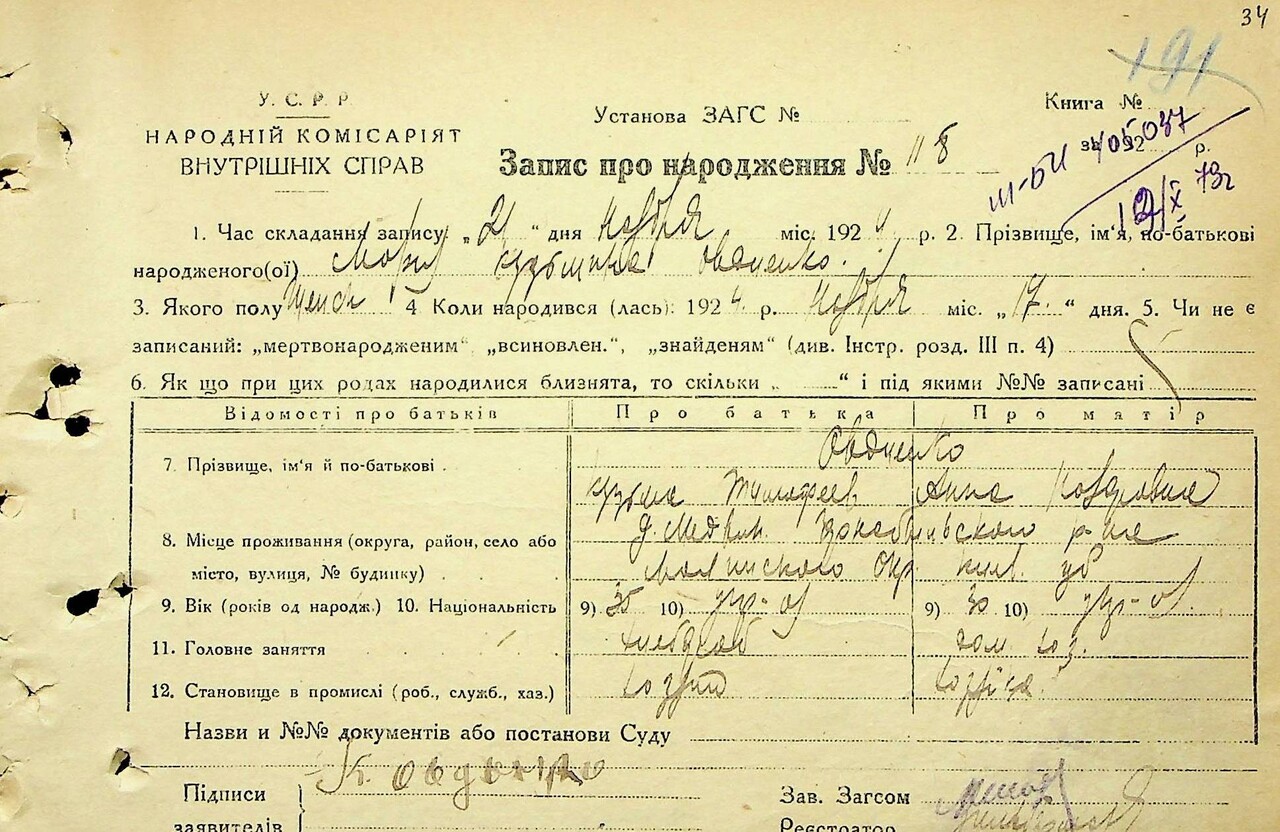 34
191
У. С. Р. Р.
НАРОДНІЙ КОМІСАРІЯТ
ВНУТРІШНІХ СПРАВ
Установа ЗАГС №
Книга №
за 192 р.
III-БИ 405037
12/X 73г
Запис про народження № 118
1. Час складання запису „21“ дня Ноября міс. 1924 р. 2. Прізвище, ім'я, по-батькові
народженого(ої) Мария Кузьминa Овдиенко.
3. Якого полу Женск 4 Коли народився (лась): 1924 р. Ноября міс. „17.“ дня. 5. Чи не є
записаний: „мертвонародженим“ „всиновлен.“, „знайденям“ (див. Інстр. розд. III п. 4)
6. Як що при цих родах народилися близнята, то скільки „ “ і під якими №№ записані
Відомості про батьків Про батька Про матір
7. Прізвище, ім'я й по-батькові Овдиенко
Кузьма Тимофеев Анна
8. Місце проживання (округа, район, село або
місто, вулиця, № будинку)
Окр. Киев. губ
9. Вік (років од народж.) 10. Національність 9) 35 10) укр- 9) 30 10) укр-
11. Головне заняття дом. хоз.
12. Становище в промислі (роб., служб., хаз.) хозяин хозяйка
Назви и №№ документів або постанови Суду
К. Овдиенко
Підписи
заявителів
Зав. Загсом
Реєстратор